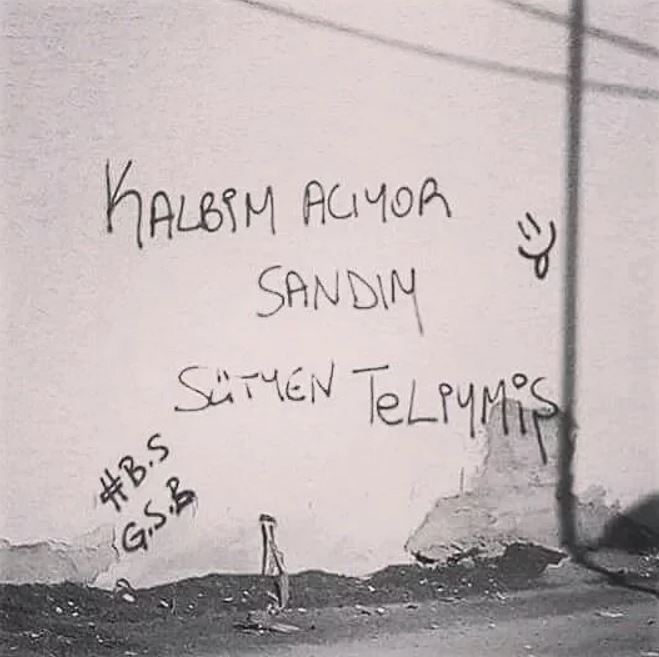 KALBİM ACIYOR
SANDIM
SÜTYEN TeLİYMİŞ
#B.S
G.S.B